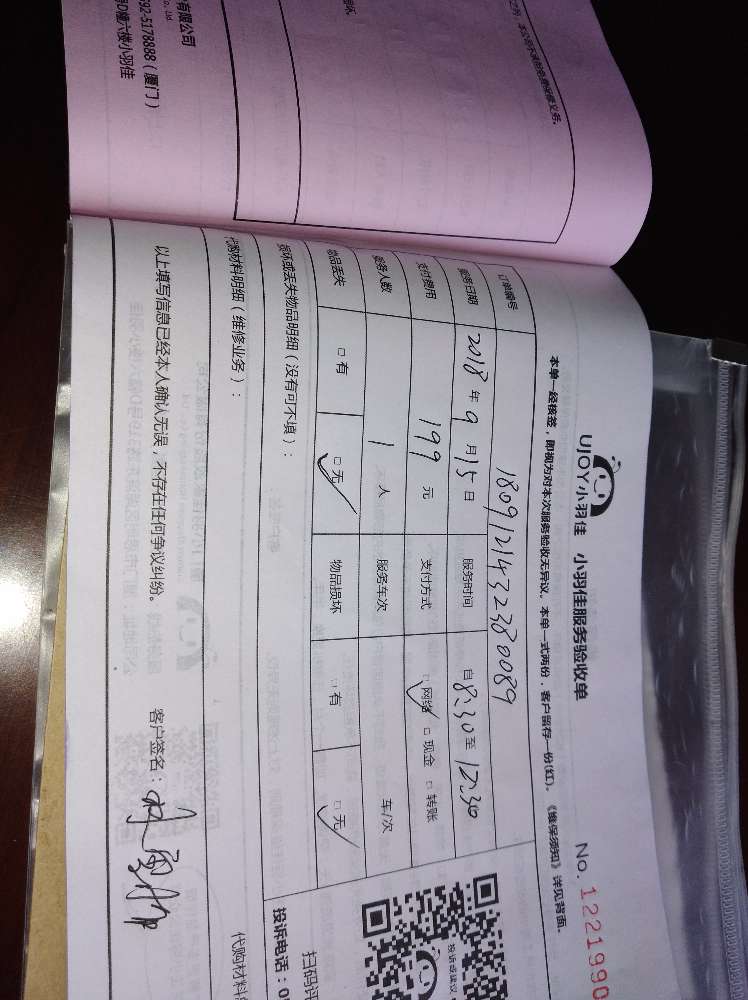 之外，本公司不承担免费保修义务。
有限公司
Co., Ltd.
592-5178888（厦门）
号D幢六楼小羽佳
UJOY小羽佳
小羽佳服务验收单
No. 1221990
本单一经核签，即视为对本次服务验收无异议。本单一式两份，客户留存一份(红)。《维保须知》详见背面。
订单编号 180912143238 0089
服务日期 2018 年 9 月 15 日 服务时间 自 8:30 至 12:30
支付费用 199 元 支付方式 □ 网络 □ 现金 □ 转账
服务人数 1 人 服务车次 车/次
物品丢失 □ 有 □ 无 物品损坏 □ 有 □ 无
损坏或丢失物品明细（没有可不填）：
代购材料明细（维修业务）：
代购材料
以上填写信息已经本人确认无误，不存在任何争议纠纷。
客户签名：
投诉或建议
扫码评
投诉电话：0